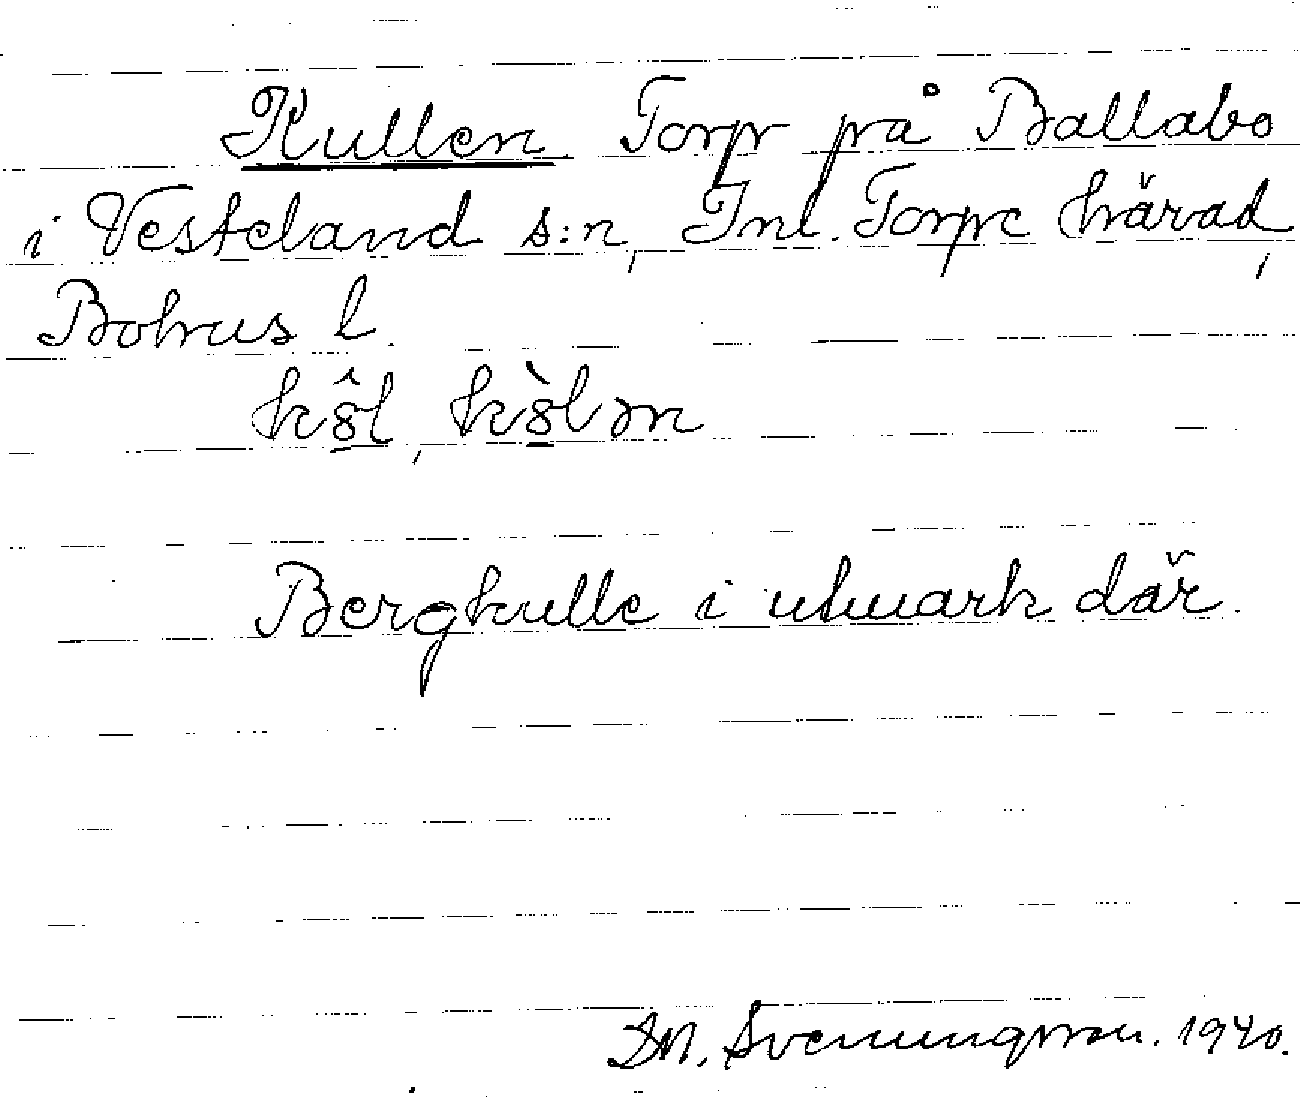 Kullen Torp på Ballabo
i Vesteland s:n, Inl. Torpe härad,
Bohus l.
Bergkulle i utmark där.
D.M. Svenungsson. 1940.